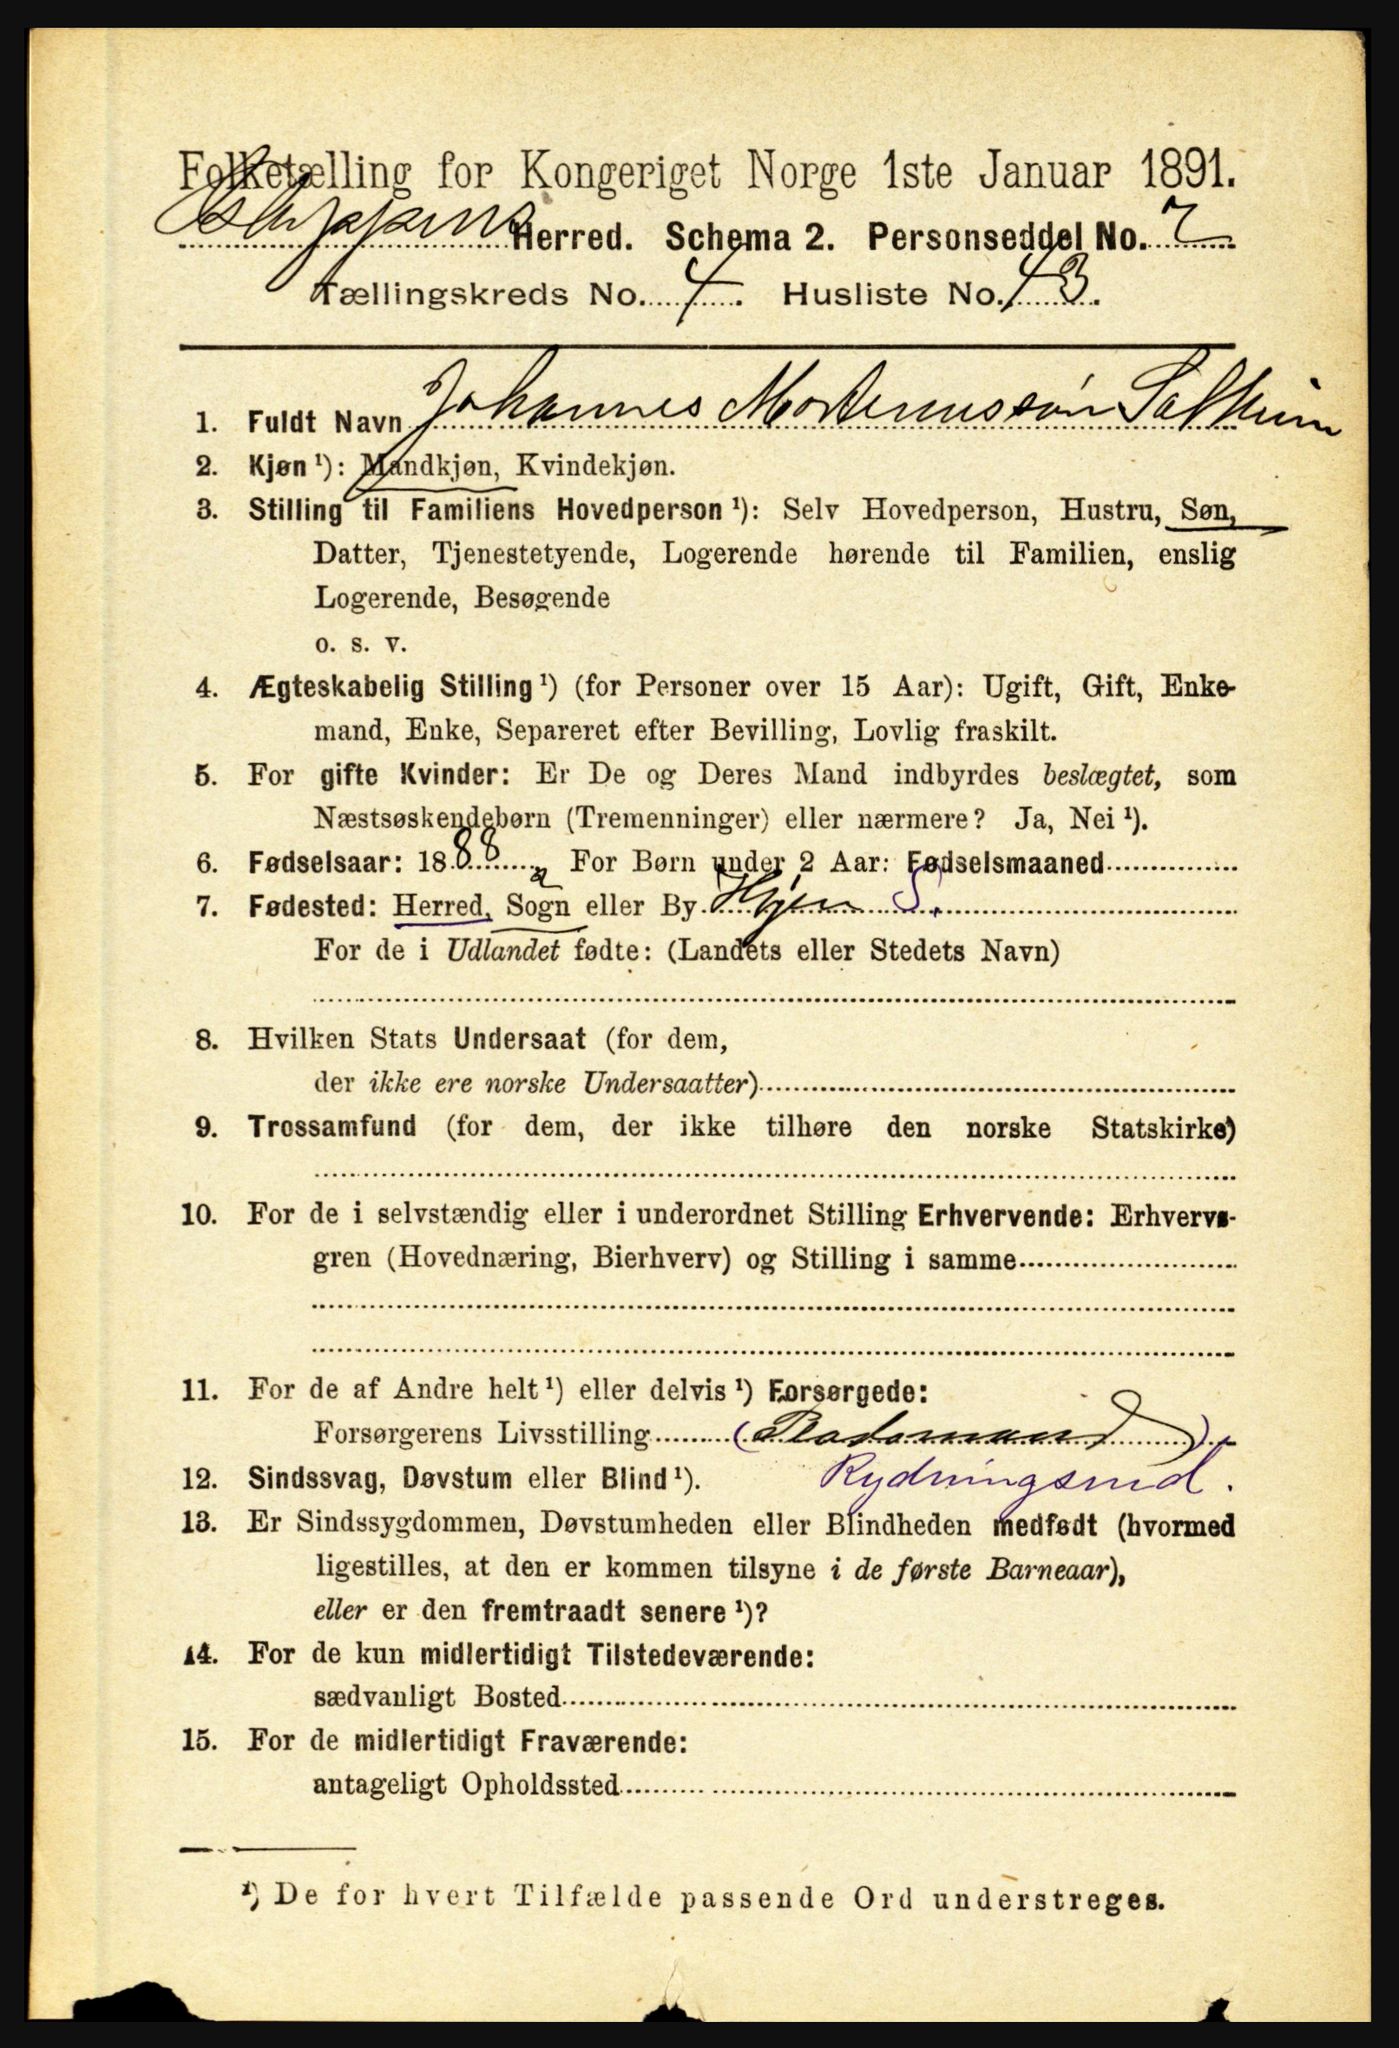 Folketælling for Kongeriget Norge 1ste Januar 1891.
Herred. Schema 2. Personseddel No. 7
Tællingskreds No. 4. Husliste No. 43.
1. Fuldt Navn Johannes
2. Kjøn ¹): Mandkjøn, Kvindekjøn.
3. Stilling til Familiens Hovedperson ¹): Selv Hovedperson, Hustru, Søn,
Datter, Tjenestetyende, Logerende hørende til Familien, enslig
Logerende, Besøgende
o. s. v.
4. Ægteskabelig Stilling ¹) (for Personer over 15 Aar): Ugift, Gift, Enke-
mand, Enke, Separeret efter Bevilling, Lovlig fraskilt.
5. For gifte Kvinder: Er De og Deres Mand indbyrdes beslægtet, som
Næstsøskendebørn (Tremenninger) eller nærmere? Ja, Nei ¹).
6. Fødselsaar: 1888 For Børn under 2 Aar: Fødselsmaaned
7. Fødested: Herred, Sogn eller By Hyen S.
For de i Udlandet fødte: (Landets eller Stedets Navn)
8. Hvilken Stats Undersaat (for dem,
der ikke ere norske Undersaatter)
9. Trossamfund (for dem, der ikke tilhøre den norske Statskirke)
10. For de i selvstændig eller i underordnet Stilling Erhvervende: Erhvervs-
gren (Hovednæring, Bierhverv) og Stilling i samme
11. For de af Andre helt ¹) eller delvis ¹) Forsørgede:
Forsørgerens Livsstilling
12. Sindssvag, Døvstum eller Blind ¹). Rydningsmd.
13. Er Sindssygdommen, Døvstumheden eller Blindheden medfødt (hvormed
ligestilles, at den er kommen tilsyne i de første Barneaar),
eller er den fremtraadt senere ¹)?
14. For de kun midlertidigt Tilstedeværende:
sædvanligt Bosted
15. For de midlertidigt Fraværende:
antageligt Opholdssted
¹) De for hvert Tilfælde passende Ord understreges.